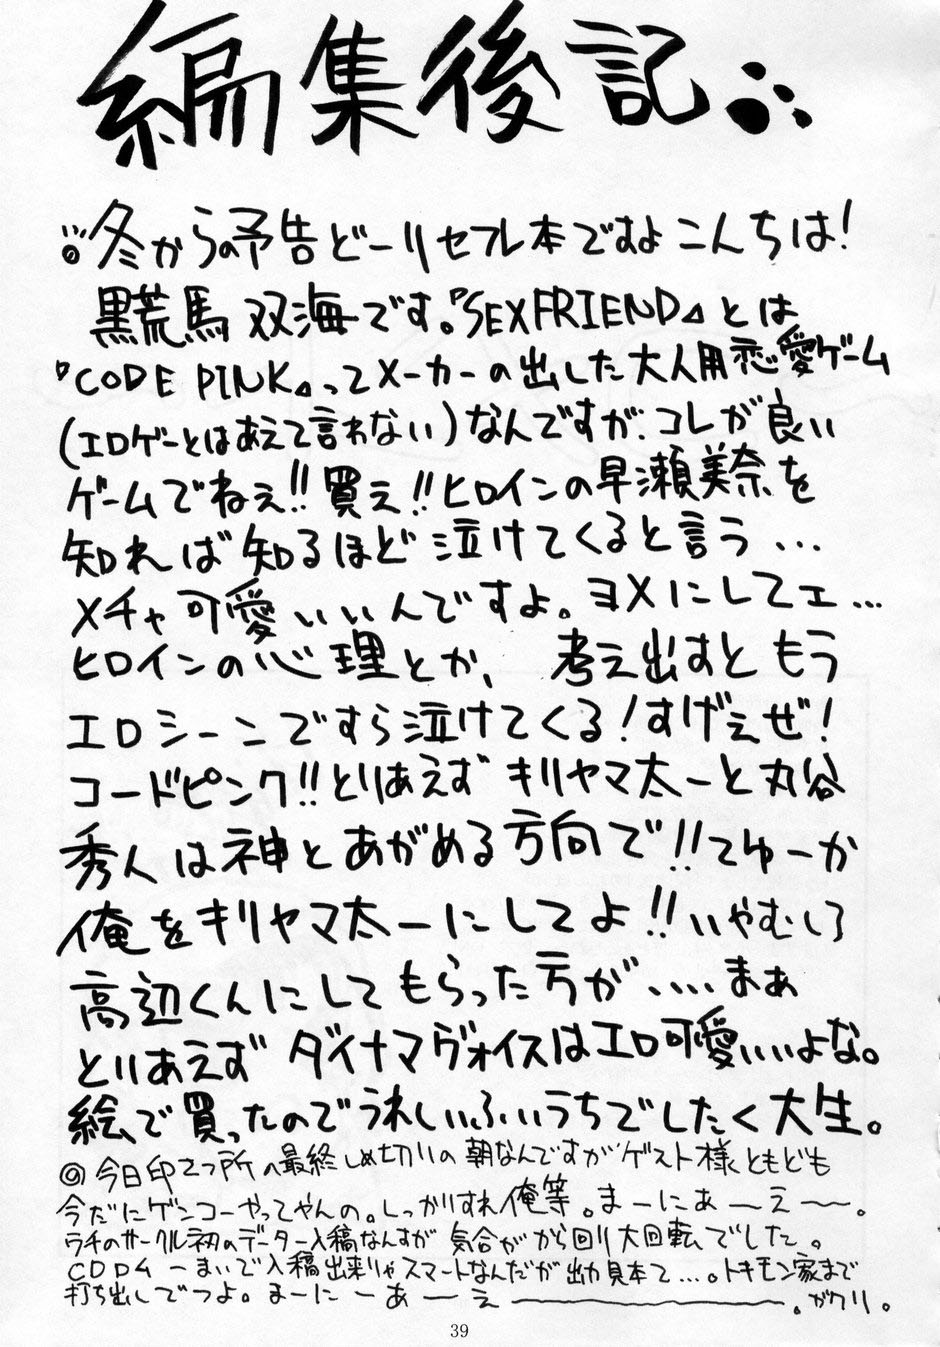 編集後記
冬からの予告どーりセフレ本ですよこんちは!
黒荒馬 双海です。『SEXFRIEND』とは
『CODE PINK』ってメーカーの出した大人用恋愛ゲーム
(エロゲーとはあえて言わない)なんですが、コレが良い
ゲームでねぇ!!買え!!ヒロインの早瀬美奈を
知れば知るほど泣けてくると言う…
メチャ可愛いいんですよ。ヨメにしてェ…
ヒロインの心理とか、考え出すともう
エロシーンですら泣けてくる!すげぇぜ!
コードピンク!!とりあえずキリヤマ太一と丸谷
秀人は神とあがめる方向で!!てゆーか
俺をキリヤマ太一にしてよ!!いやむしろ
高辺くんにしてもらった方が、…まぁ
とりあえずダイナマヴォイスはエロ可愛いいよな。
絵で買ったのでうれしいふいうちでしたく大生。
◎今日印さつ所の最終しめ切りの朝なんですがゲスト様ともども
今だにゲンコーやってやんの。しっかりすれ俺等。まーにあーえー〜。
ウチのサークル初のデーター入稿なんすが気合がから回り大回転でした。
一まいで入稿出来りゃスマートなんだが出力見本て…。トキモン家まで
打ち出しでつよ。まーにーあーえ―――。ガクリ。
39